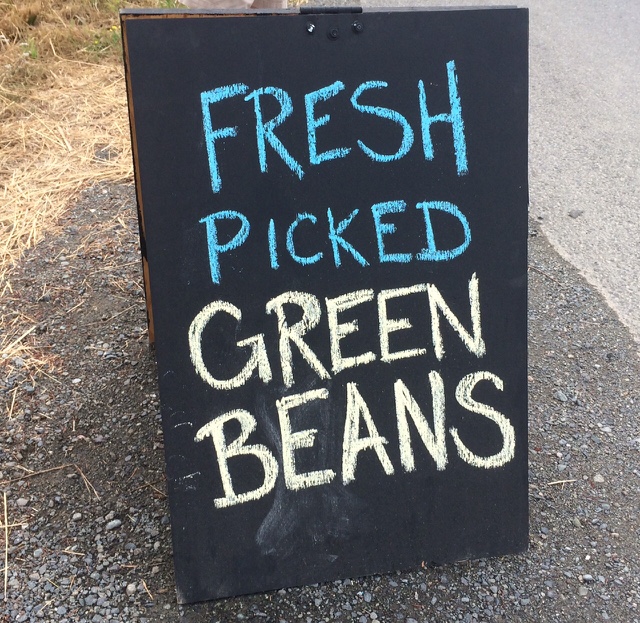 FRESH
PICKED
GREEN
BEANS